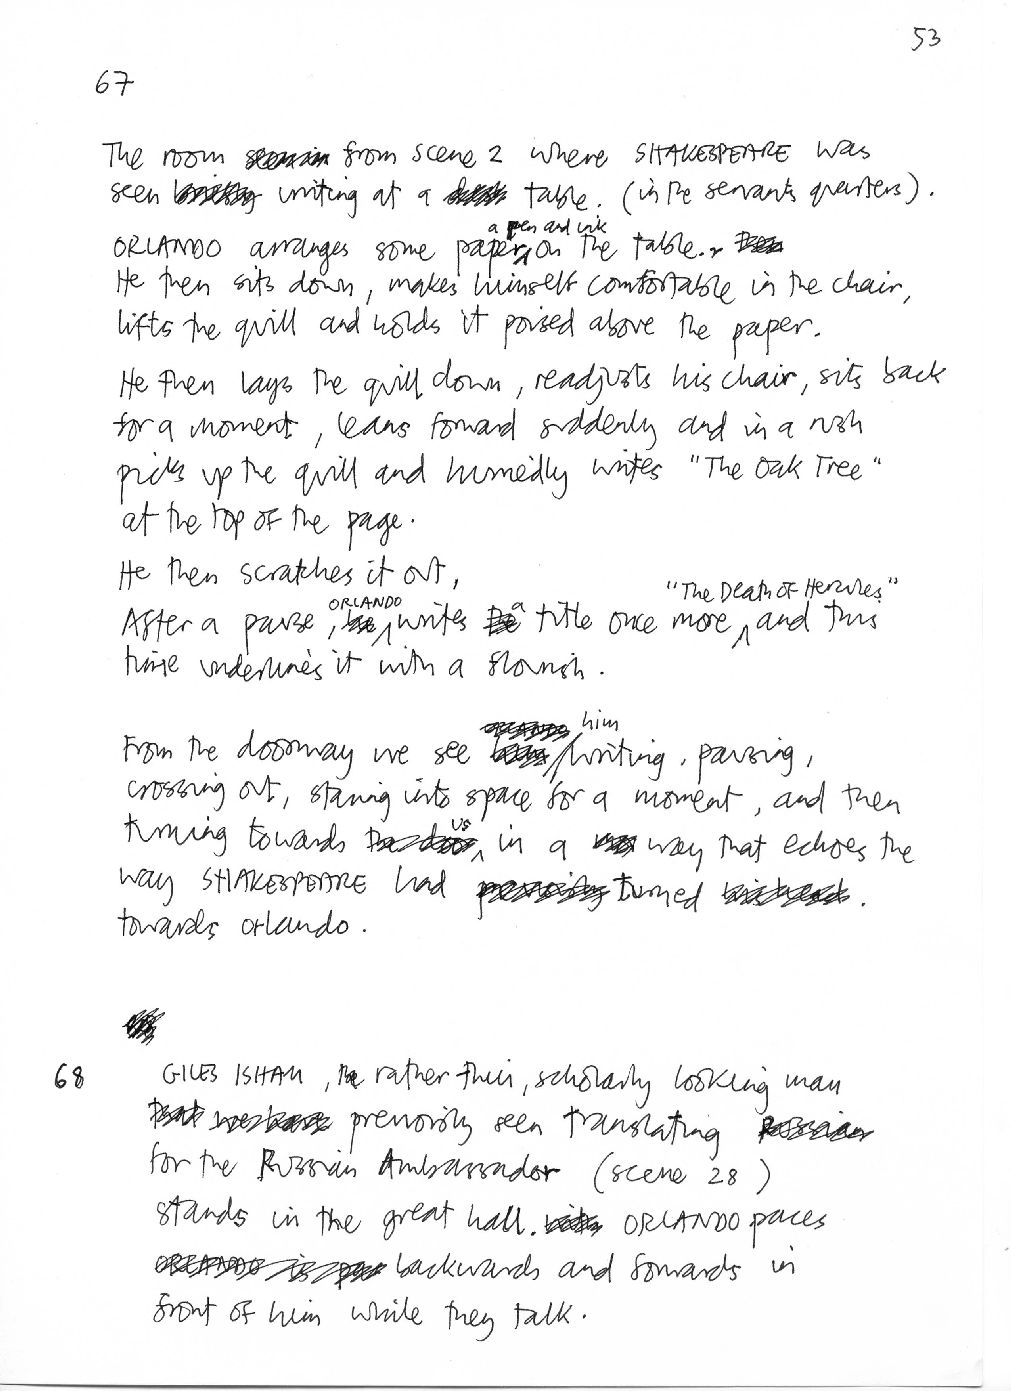 53
67
The room from scene 2 where SHAKESPEARE was
seen writing at a table. (in the servants quarters).
a pen and ink
ORLANDO arranges some paper, on the table.
He then sits down, makes himself comfortable in the chair,
lifts the quill and holds it poised above the paper.
He then lays the quill down, readjusts his chair, sits back
for a moment, leans forward suddenly and in a rush
picks up the quill and hurriedly writes "The Oak Tree"
at the top of the page.
He then scratches it out,
ORLANDO a "The Death of Hercules"
After a pause, he writes the title once more and this
time underlines it with a flourish.
him
From the doorway we see writing, pausing,
crossing out, staring into space for a moment, and then
us
turning towards in a way that echoes the
way SHAKESPEARE had turned
towards Orlando.
68 GILES ISHAM, the rather thin, scholarly looking man
previously seen translating Russian
for the Russian Ambassador (scene 28)
stands in the great hall. ORLANDO paces
ORLANDO is backwards and forwards in
front of him while they talk.